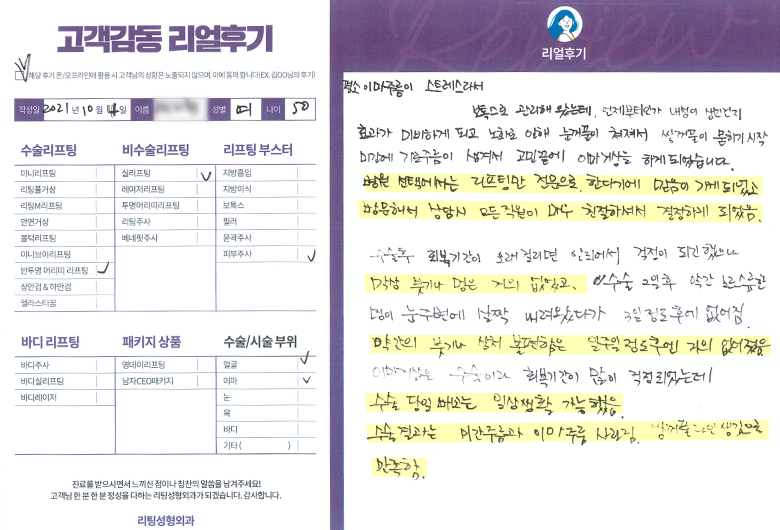 고객감동 리얼후기
해당 후기 온/오프라인에 활용 시 고객님의 성함은 노출되지 않으며, 이에 동의 합니다(EX. 김OO님의 후기)
작성일 2021년 10월 4일 이름 성별 여 나이 50
수술리프팅
미니리프팅
리팅풀거상
리팅M리프팅
안면거상
볼턱리프팅
미니브이리프팅
반투명 머리띠 리프팅
상안검 & 하안검
엘라스티꿈
비수술리프팅
실리프팅
레이저리프팅
투명머리띠리프팅
리팅주사
베네핏주사
리프팅 부스터
지방흡입
지방이식
보톡스
필러
윤곽주사
피부주사
바디 리프팅
바디주사
바디실리프팅
바디레이저
패키지 상품
영데이리프팅
남자CEO패키지
수술/시술 부위
얼굴
이마
눈
목
바디
기타 ( )
진료를 받으시면서 느끼신 점이나 칭찬의 말씀을 남겨주세요!
고객님 한 분 한 분 정성을 다하는 리팅성형외과가 되겠습니다. 감사합니다.
리팅성형외과
Review
리얼후기
평소 이마주름이 스트레스라서
보톡스로 관리해 왔는데, 언제부터인가 내성이 생반건지
효과가 미비하게 되고 노화로 인해 눈꺼풀이 쳐져서 쌍꺼풀이 묻히기 시작
미간에 기본주름이 생겨서 고민끝에 이마거상을 하게 되었습니다.
병원 선택에서는 리프팅만 전문으로 한다기에 믿음이 가게 되었고
방문해서 상담시 모든직원이 매우 친절하셔서 결정하게 되었음.
수술후 회복기간이 오래걸리면 않되에서 걱정이 되긴 했으나
막상 붓기나 멍은 거의 없었고, 수술 2일후 약간 노르스름한
멍이 눈주변에 살짝 내려왔다가 3일정도후에 없어짐.
약간의 붓기나 상처 불편함은 일주일정도후엔 거의 없어졌음
이마거상은 수술이라 회복기간이 많이 걱정되었는데
수술 당일빼고는 일상생활 가능했음.
수술결과는 미간주름과 이마주름 사라짐. 쌍꺼풀라인 생김으로
만족함.